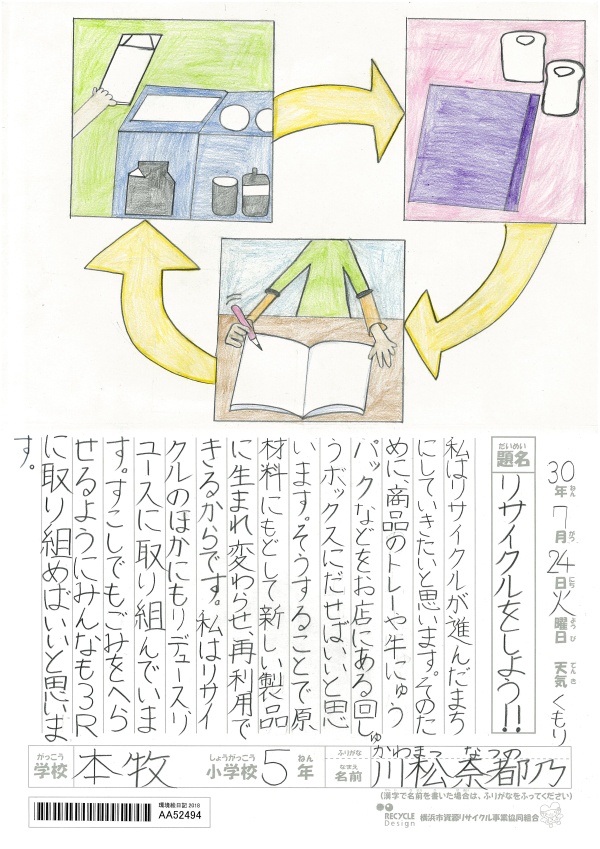 30年ねん7月がつ24日にち火曜日ようび 天気てんきくもり
題名だいめい リサイクルをしよう!!
私はリサイクルが進んだまち
にしていきたいと思います。そのた
めに、商品のトレーや牛にゅう
パックなどをお店にある回しゅ
うボックスにだせばいいと思
います。そうすることで原
材料にもどして新しい製品
に生まれ変わらせ、再利用で
きるからです。私はリサイ
クルのほかにもリデュース、リ
ユースに取り組んでいま
す。すこしでもごみをへら
せるようにみんなも3R
に取り組めばいいと思いま
す。
がっこう 学校 本牧 しょうがっこう 小学校 5 ねん 年
ふりがな かわまつ なつの
なまえ 名前 川松 奈都乃
(漢字で名前を書いた場合は、ふりがなをふってください)
環境絵日記 2018
AA52494
RECYCLE Design 横浜市資源リサイクル事業協同組合